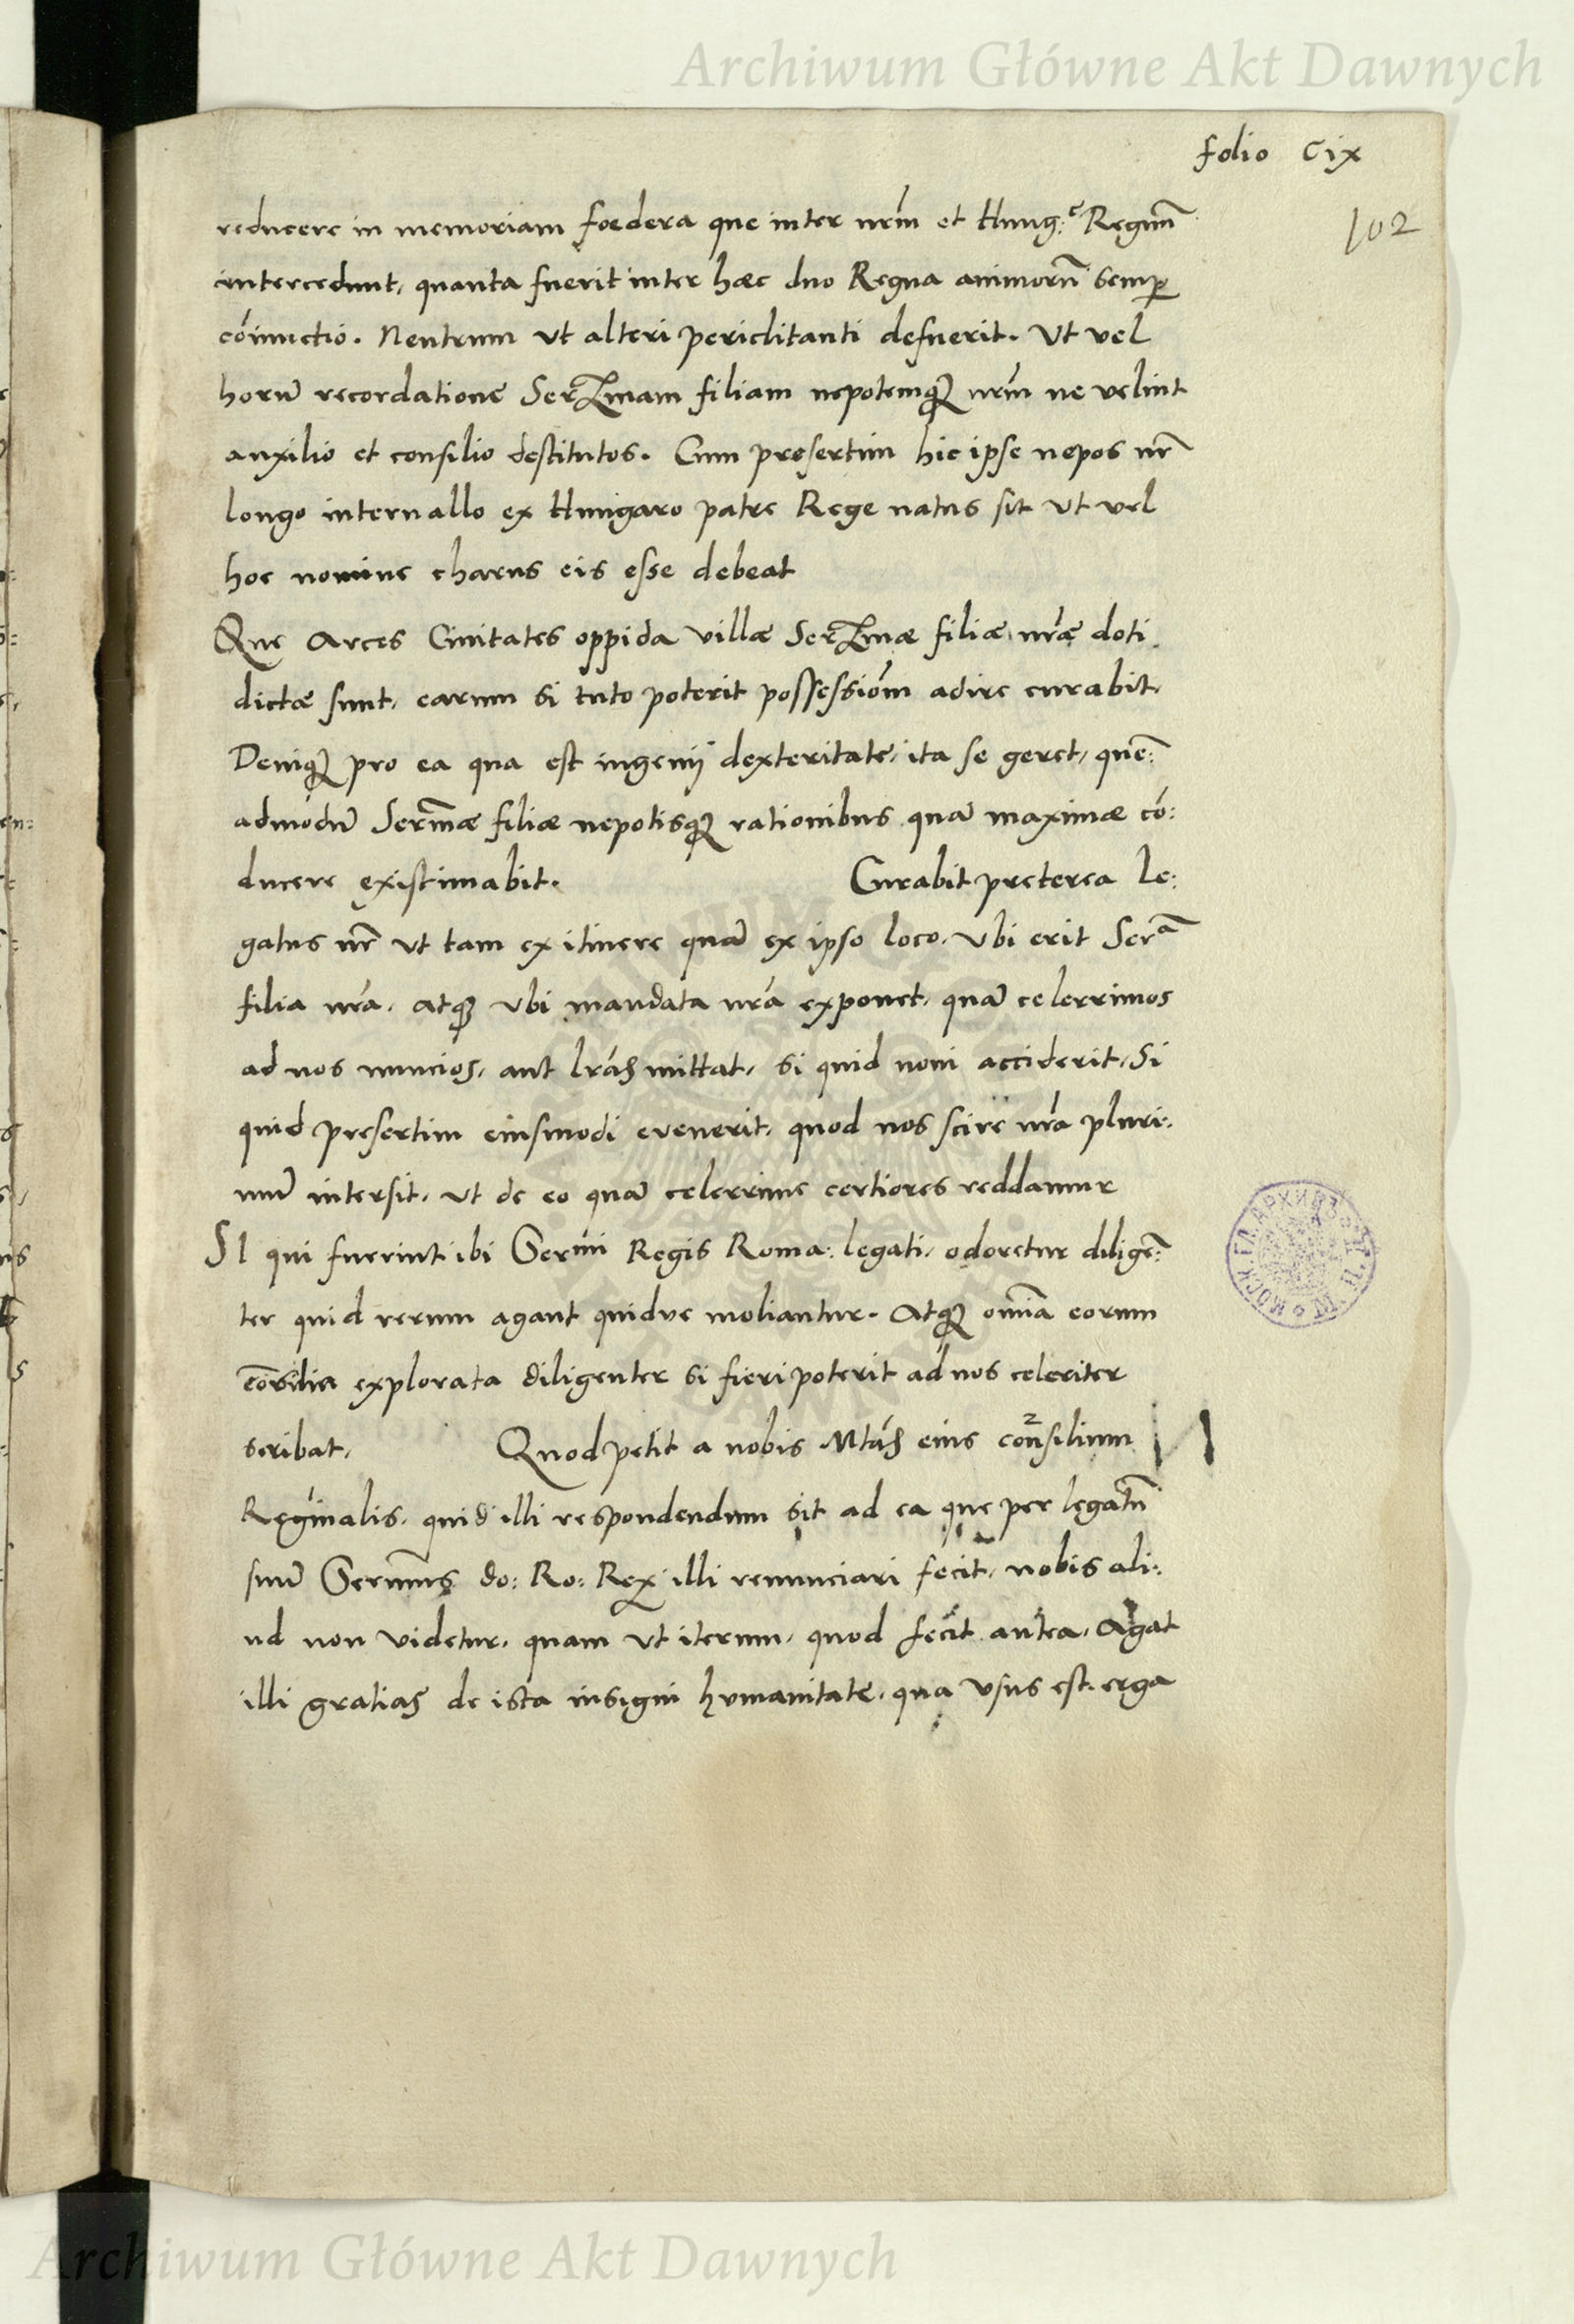 Archiwum Główne Akt Dawnych
folio Cix
102
reducere in memoriam foedera que inter nr̃m et Hung:ᵉ Regnũ
intercedunt, quanta fuerit inter hæc duo Regna animorũ semp
cõiunctio. Neutrum ut alteri periclitanti defuerit. Ut vel
horũ recordatione Serᵐmam filiam nepotemq̃ nr̃m ne velint
auxilio et consilio destitutos. Cum presertim hic ipse nepos nr̃
longo interuallo ex Hungaro patre Rege natus sit ut vel
hoc nomine charus eis esse debeat
Que Arces Ciuitates oppida villæ Serᵐmæ filiæ nr̃æ doti
dictæ sunt, earum si tuto poterit possessiõm adire curabit.
Deniq̃ pro ea qua est ingenij dexteritate, ita se geret, quẽ:
admodũ Serm̃æ filiæ nepotisq̃ rationibus quã maximæ cõ:
ducere existimabit. Curabit preterea le:
gatus nr̃ ut tam ex itinere quã ex ipso loco, ubi erit Serᵃ
filia nr̃a, atq̃ ubi mandata nr̃a exponet, quã celerrimos
ad nos nuncios, aut lr̃as mittat, si quid noui acciderit, Si
quid presertim eiusmodi evenerit, quod nos scire nr̃a pluri:
mũ intersit, ut de eo quã celerrime certiores reddamur
SI qui fuerint ibi Serm̃i Regis Roma: legati, odoretur diligẽ:
ter quid rerum agant quidve moliantur. Atq̃ om̃ia eorum
cõsilia explorata diligenter si fieri poterit ad nos celeriter
scribat, Quod petit a nobis Mt̃as eius consilium
Reginalis, quid illi respondendum sit ad ea que per legatũ
suũ Serm̃us do: Ro: Rex illi renunciari fecit, nobis ali:
ud non videtur, quam ut iterum, quod fecit antea, Agat
illi gratias de ista insigni humanitate, qua usus est erga
Archiwum Główne Akt Dawnych